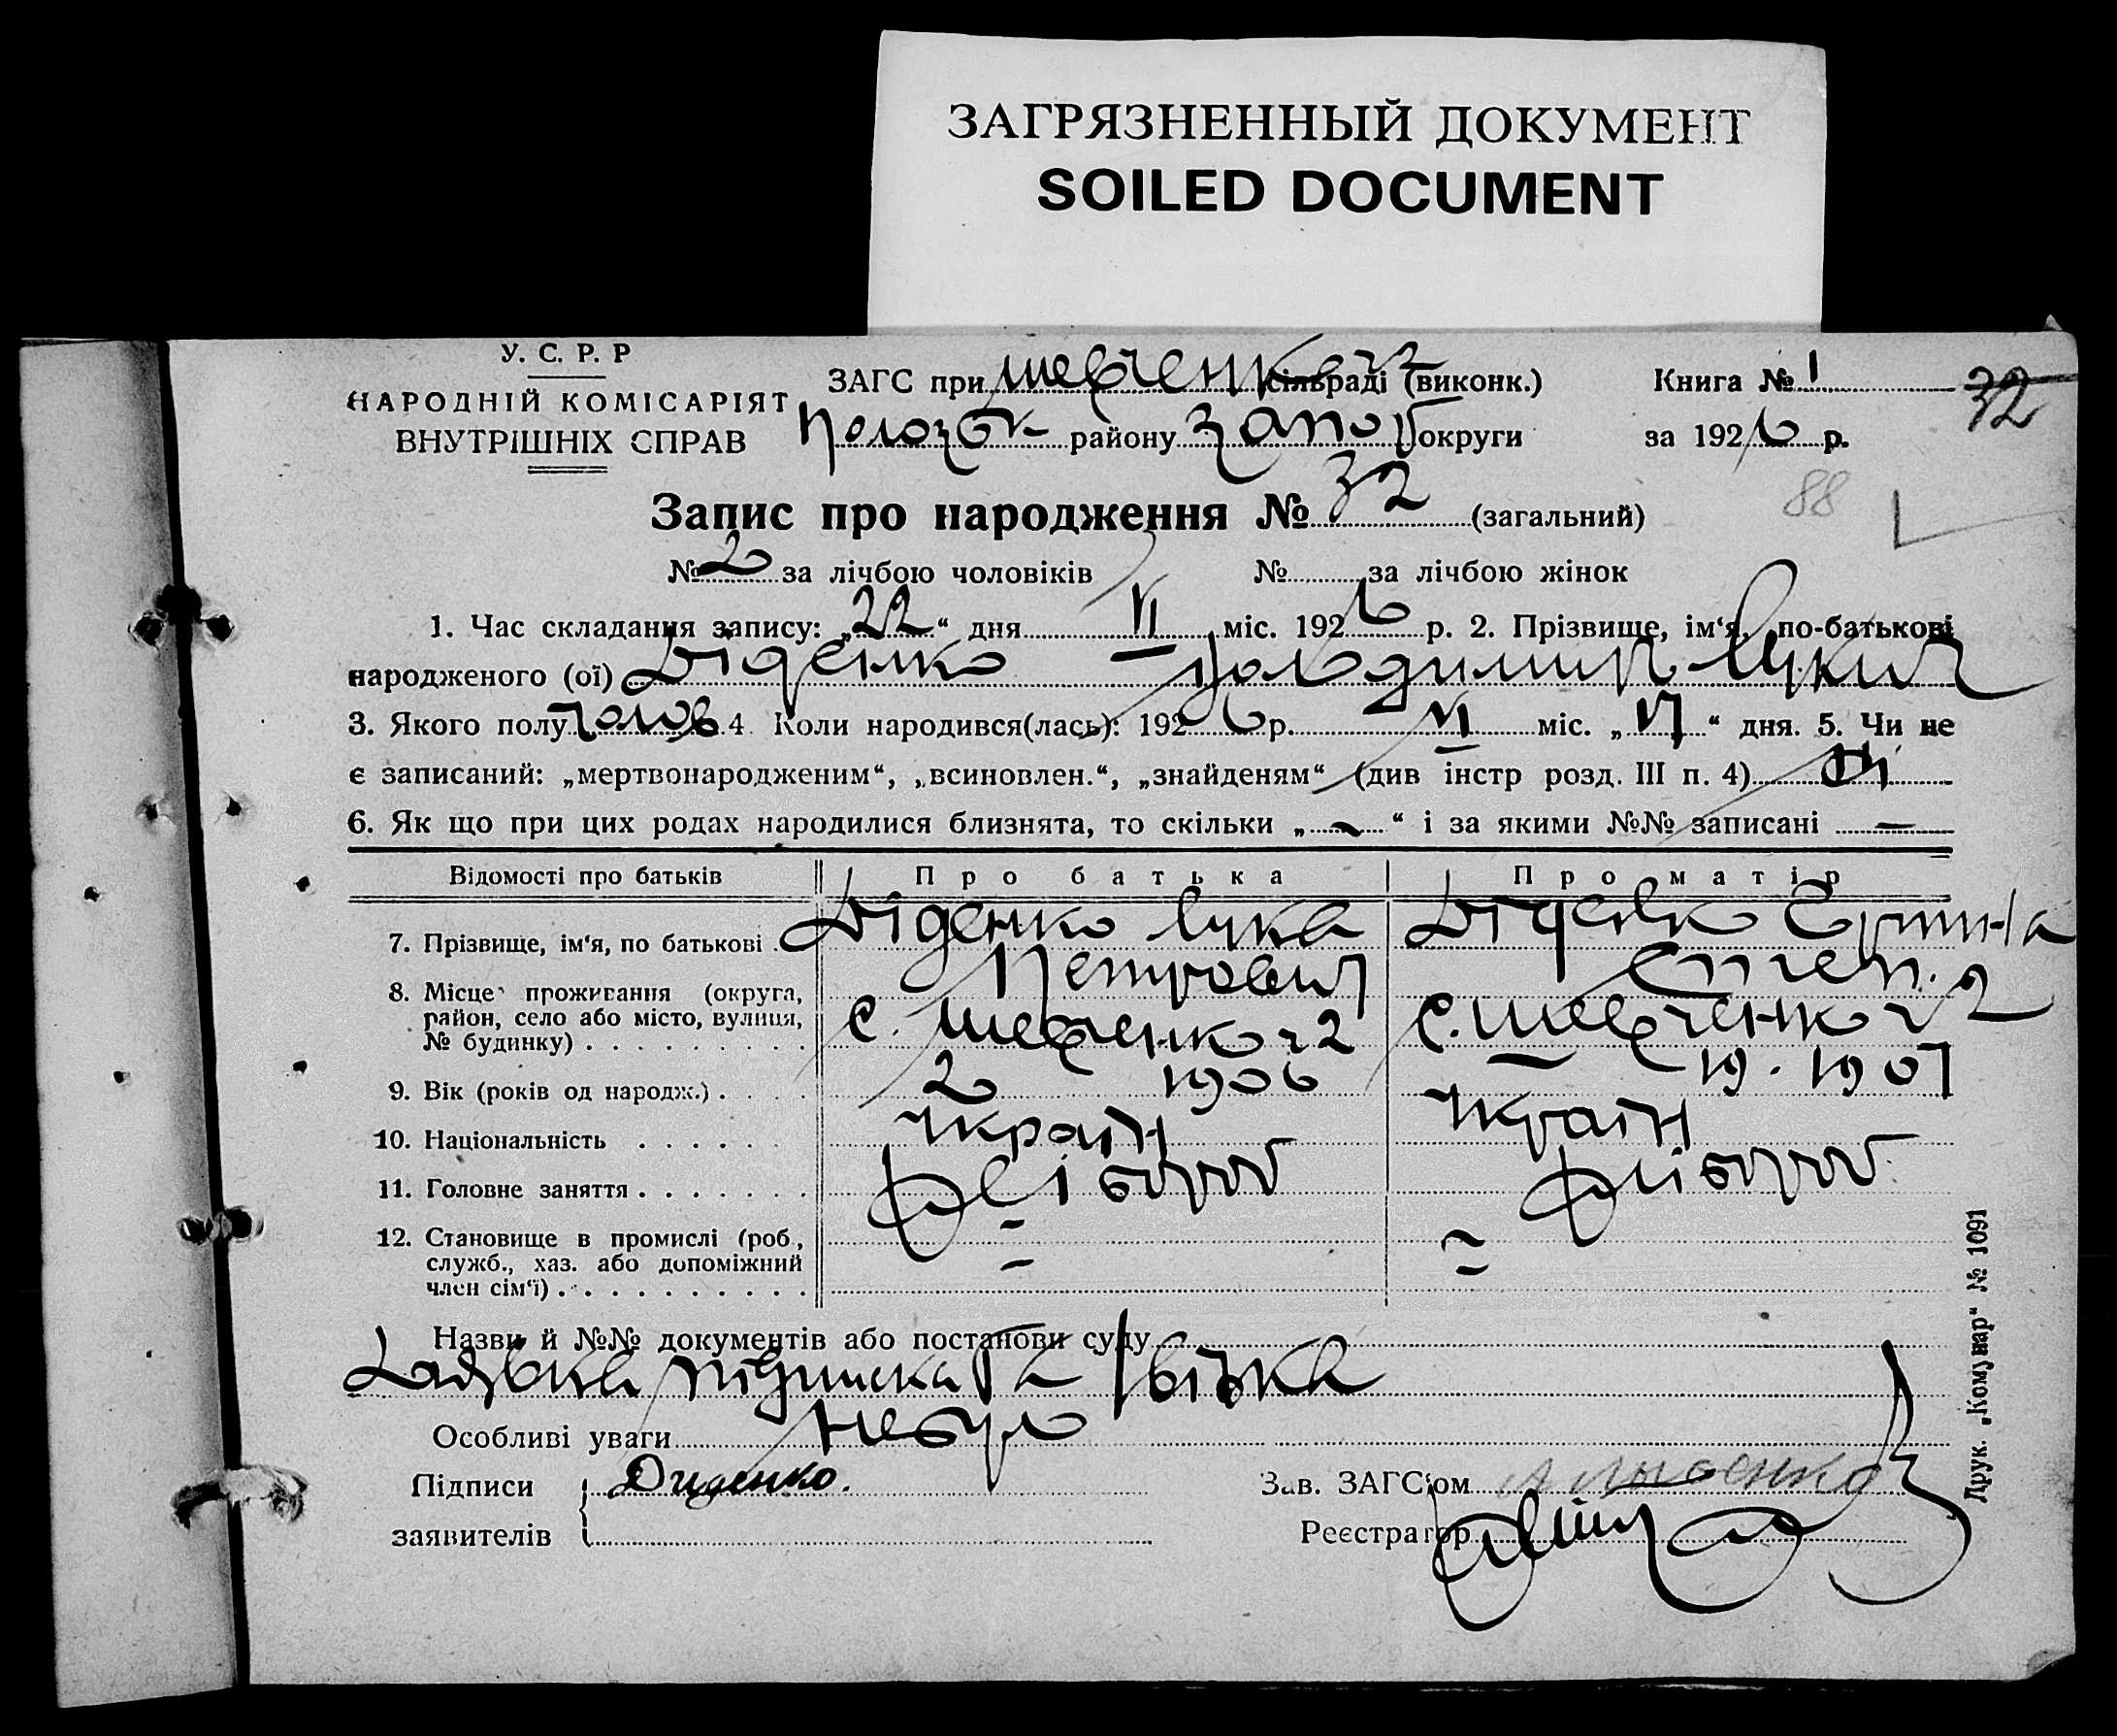 ЗАГРЯЗНЕННЫЙ ДОКУМЕНТ
SOILED DOCUMENT
У. С. Р. Р
НАРОДНІЙ КОМІСАРІЯТ
ВНУТРІШНІХ СПРАВ
ЗАГС при Шевченківз сільраді (виконк.)
Пологівськ району Запор округи
Книга № 1
32
за 1926 р.
Запис про народження № 32 (загальний)
88
№ 2 за лічбою чоловіків № за лічбою жінок
1. Час складання запису: „22“ дня VI міс. 1926 р. 2. Прізвище, ім‘я, по-батькові
народженого (ої) Діденко Володимир Лукич
3. Якого полу чолов 4. Коли народився(лась): 1926 р. VI міс. „17“ дня. 5. Чи не
є записаний: „мертвонародженим“, „всиновлен.“, „знайденям“ (див інстр розд. III п. 4) ні
6. Як що при цих родах народилися близнята, то скільки „-“ і за якими №№ записані -
Відомості про батьків Про батька Про матір
7. Прізвище, ім‘я, по батькові . Діденко Лука Петрович Діденко Орина Степ.
8. Місце проживання (округа,
район, село або місто, вулиця,
№ будинку) . . . . . . . . . с. Шевченко с. Шевченко
9. Вік (років од народж.) . . . . 20 1906 19. 1907
10. Національність . . . . . . україн україн
11. Головне заняття . . . . . . . хлібороб хлібороб
12. Становище в промислі (роб.,
служб., хаз. або допоміжний
член сім‘ї) . . . . . . . . . . = =
Назви й №№ документів або постанови суду
підписка та
Особливі уваги не було
Підписи Диденко.
заявителів
Зав. ЗАГС‘ом
Реєстратор
Друк. „Комунар“ № 1091